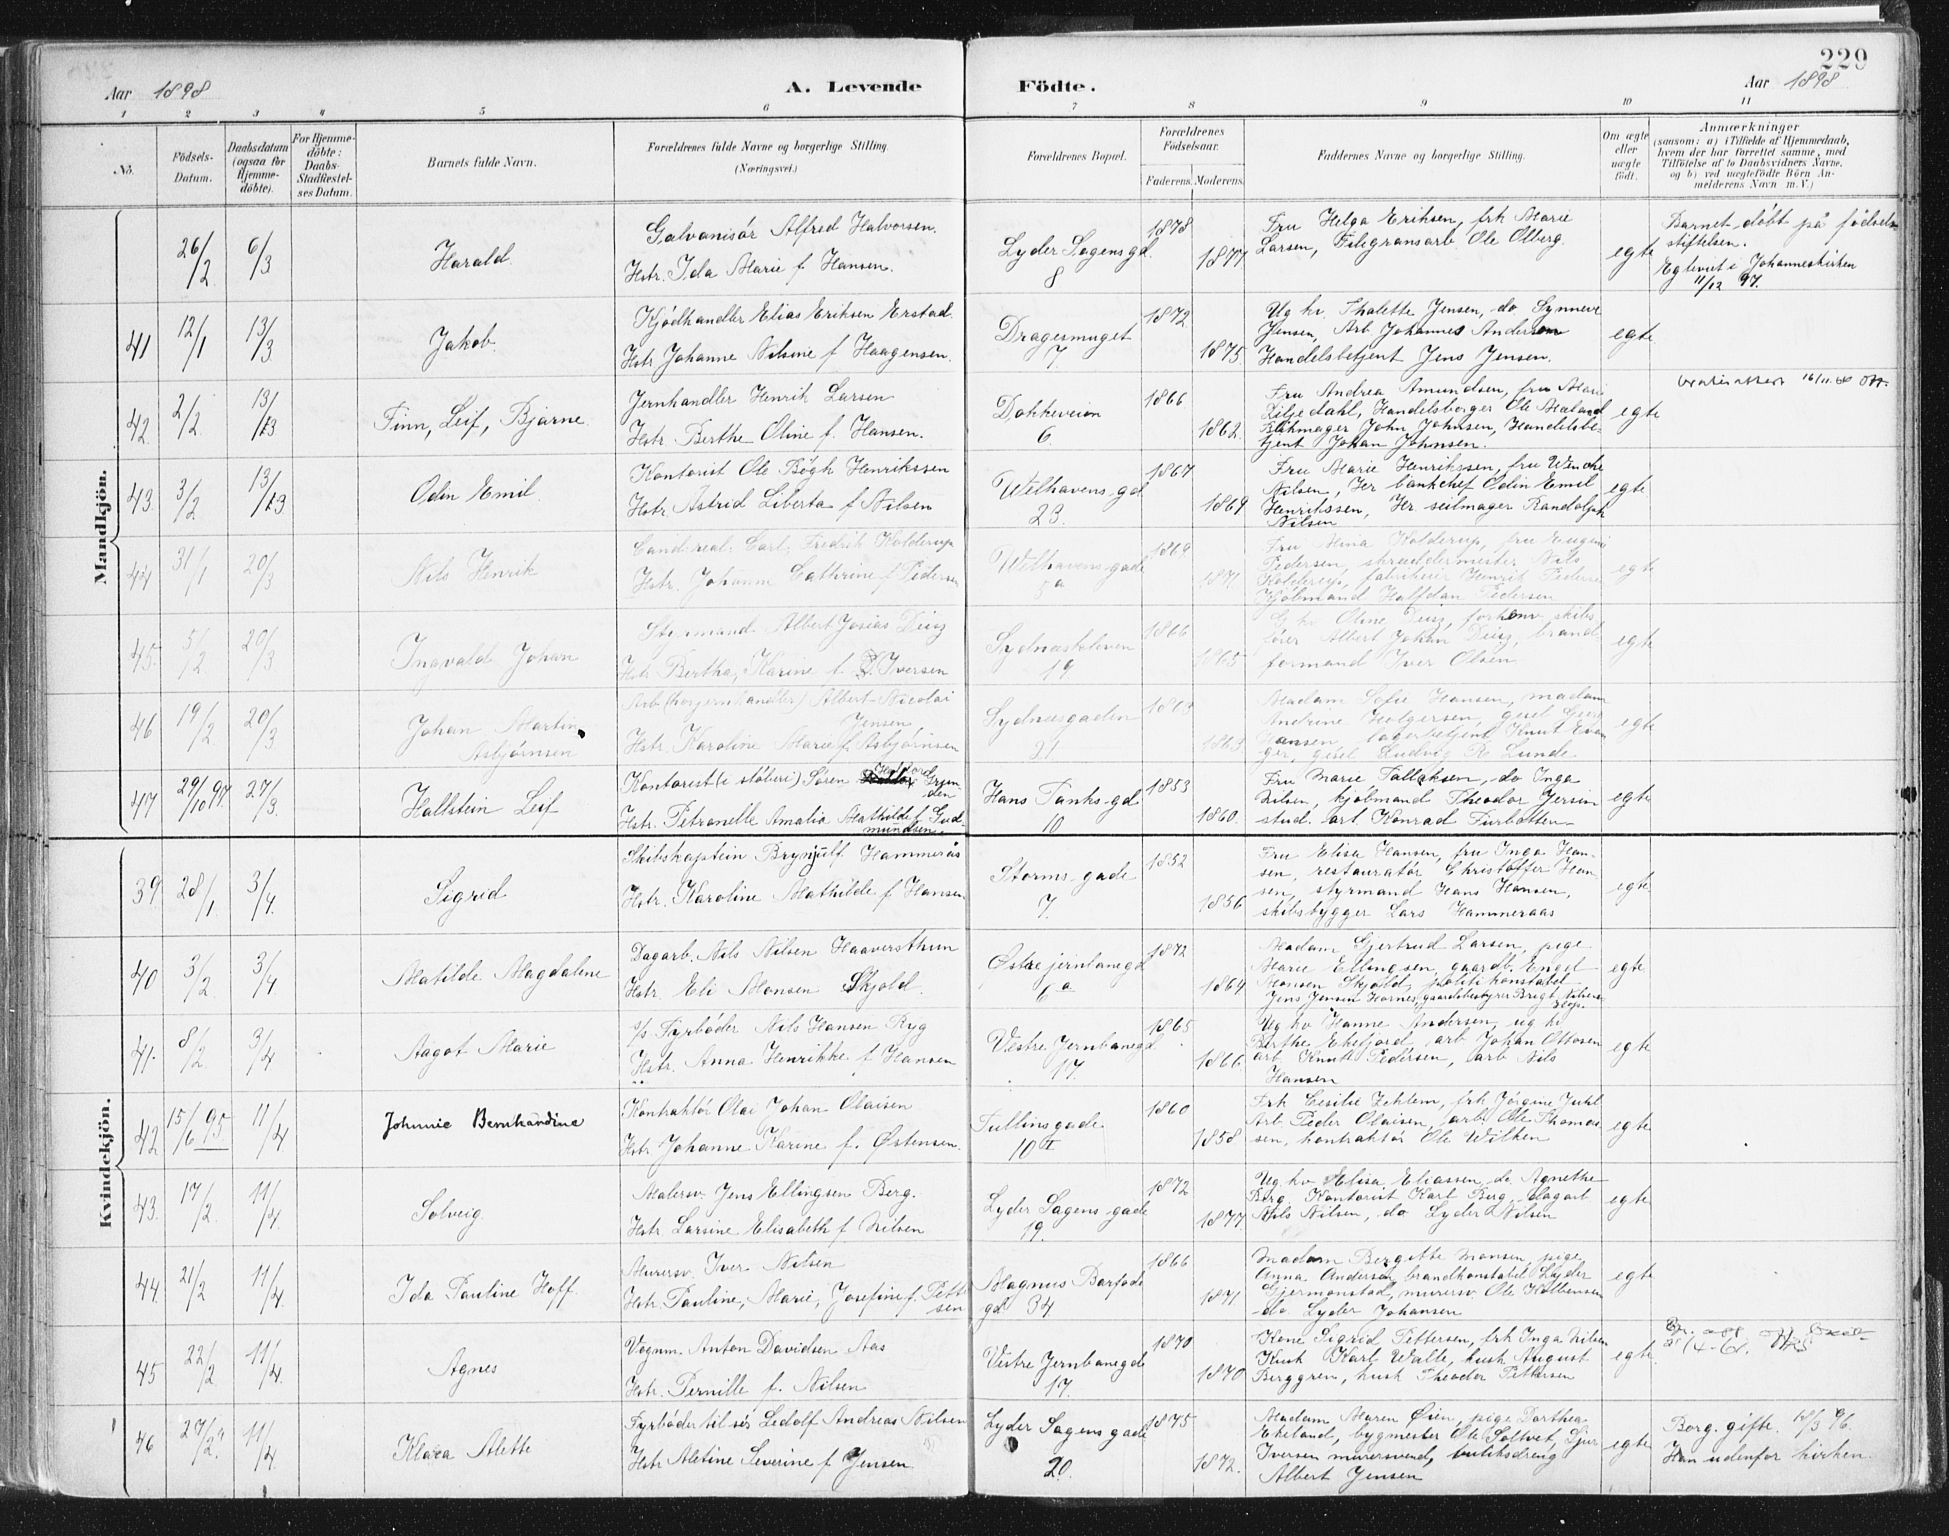 229
Aar 1898 A. Levende Födte. Aar 1898
1 2 3 4 5 6 7 8 9 10 11
No. Födsels-Datum. Daabsdatum (ogsaa for Hjemme-döbte). For Hjemme-döbte: Daabs-Stadfæstel-ses Datum. Barnets fulde Navn. Forældrenes fulde Navne og borgerlige Stilling. (Næringsvei.) Forældrenes Bopæl. Forældrenes Födselsaar. Faderens. Moderens. Faddernes Navne og borgerlige Stilling. Om ægte eller uægte födt. Anmærkninger (saasom: a) i Tilfælde af Hjemmedaab, hvem der har forrettet samme, med Tilföielse af to Daabsvidners Navne, og b) ved uægtefödte Börn An-melderens Navn m. V.)
Mandkjön.
26/2 6/3 Harald. Galvanisör Alfred Halvorsen. Hstr. Ida Marie f. Hansen. Lyder Sagens gd. 8 1878 1877 Fru Helga Eriksen, frk Marie
Larsen, Filigransarb. Ole Olberg. egte Barnet döbt på födsels-
stiftelsen.
Egteviet i Johanneskirken
11/12 97.
41 12/1 13/3 Jakob. Kjödhandler Elias Eriksen Erstad. Hstr. Johanne Nilsine f. Haagensen. Dragesmuget 7. 1872 1875. Ug kv. Thalette Jensen, do Synneve
Jensen, Arb Johannes Andersen
Handelsbetjent Jens Jensen. egte
42. 2/2 13/3 Finn, Leif, Bjarne. Jernhandler Henrik Larsen Hstr. Berthe Oline f. Hansen. Dokkeveien 6. 1866 1862. Fru Andrea Amundsen, fru Mari
Liljedahl, Handelsborger Ole Mæland
John Johnsen, Handelsbe-
tjent Johan Johnsen. egte
43. 3/2 13/3 Odin Emil. Kontorist Ole Bøgh Henrikssen Hstr. Astrid Liberta f. Nilsen Welhavens gd 23. 1867 1869 Fru Marie Henrikssen, fru Wenche
Nilsen, Hr. bankchef Odin Emil
Henrikssen, Hr. seilmager Randolph
Nilsen egte
44 31/1 20/3 Nils Henrik Cand. real. Carl Fredrik Kolderup Hstr. Johanne Cathrine f. Pedersen Welhavens gade 5a 1869 1871 Fru Mina Kolderup, fru Eugeni
Pedersen, skræddermester Nils
Kolderup, fabrikeier Henrik Pedersen
Kjöbmand Halfdan Pedersen egte
45. 5/2 20/3 Ingvald Johan Styrmand Albert Josias Hstr Bertha, Karine f. Iversen Sydnæskleven 19 1866 1865 G. kv. Oline forhenv. skibs
förer Albert Johan brand
formand Iver Olsen egte
46 19/2 20/3 Johan Martin Asbjörnsen Arb. Albert Nicolai Jensen Hstr. Karoline Marie f. Asbjörnsen Sydnæsgaden 21 1863 1863 Madam Sofie Hansen, madam
Andrine Holgersen,
Hansen, lagerbetjent Knut
Ludvig Lunde egte
47 29/10 97. 27/3. Hallstein Leif Kontorist (i støberi) Sören Hstr. Petronelle Amalia Mathilde f. Gud-
mundsen. Hans Tanks gd 10 1853 1860. Fru Marie Tallaksen, do Inga
Nilsen, kjöbmand Theodor Jersin
stud. art Konrad egte
Kvindekjön.
39. 28/1 3/4. Sigrid Skibskaptein Brynjulf Hammerås Hstr. Karoline Mathilde f. Hansen. Storms gade 7. 1852 1856 Fru Elisa Hansen, fru Inga Han-
sen, restauratör Christoffer Han
sen, styrmand Hans Hansen,
skibsbygger Lars Hammeraas egte
40 3/2. 3/4 Matilde Magdalene Dagarb. Nils Nilsen Haaversthun Hstr. Eli Monsen Skjold. Østre jernbanegd 6a 1872 1864 Madam Gjertrud Larsen, pige
Marie Ellingsen, gaardb. Engel
Monsen Skjold, politikonstabel
Jens Jensen Hornes, gaardsbestyrer egte
41. 8/2. 3/4 Aagot Marie Fyrböder Nils Hansen Ryg Hstr. Anna Henrikke f. Hansen Vestre Jernbanegd 17. 1865 1866 Ug kv Hanne Andersen, ug kv
Berthe Ekefjord, arb Johan Ottosen
arb. Knut Pedersen, arb Nils
Hansen egte
42 15/6 95 11/4 Johnnie Bernhardine Kontraktör Olai Johan Olaisen Hstr. Johanne Karine f. Østensen. Tullinsgade 10 II 1860 1858 Frk Cecilie frk Jörgine Juhl
Arb. Peder Olaisen, arb. Ole Thomas
sen, kontraktör Ole Wilken egte
43. 17/2. 11/4. Solveig. Malersv. Jens Ellingsen Berg. Hstr Larsine Elisabeth f Nilsen Lyder Sagens gade 19. 1872 1877 Ug. kv. Elisa Eliassen, do Agnethe
Berg. Kontorist Karl Berg, dagarb
Nils Nilsen, do Lyder Nilsen egte
44. 21/2 11/4. Ida Pauline Hoff Murersv. Iver Nilsen Hstr. Pauline, Marie, Josefine f. Petter
sen Magnus Barfods gd 34 1866 1871 Madam Bergitte Monsen, pige
Anna Andersen brandkonstabel Lyder
murersv. Ole
do. Lyder Johansen egte
45 22/2 11/4. Agnes Vognm. Anton Davidsen Aas Hstr. Pernille f. Nilsen Vestre Jernbanegd 17. 1870 1870 Kone Sigrid Pettersen, frk Inga Nilsen
Kusk Karl Walle, kusk August
Berggren, kusk Theodor Pettersen egte.
46 27/2. 11/4. Klara Alette Fyrböder til sös Ledolf Andreas Nilsen Hstr Aletine Severine f Jensen Lyder Sagens gade 20. 1875 1872. Madam Maren Øien, pige Dorthea
Ekeland, bygmester Ole Soltvet, Sjur
Iversen murersvend, butiksdreng
Albert Jensen egte Borg. gifte. 18/3 96.
Han udenfor kirken.